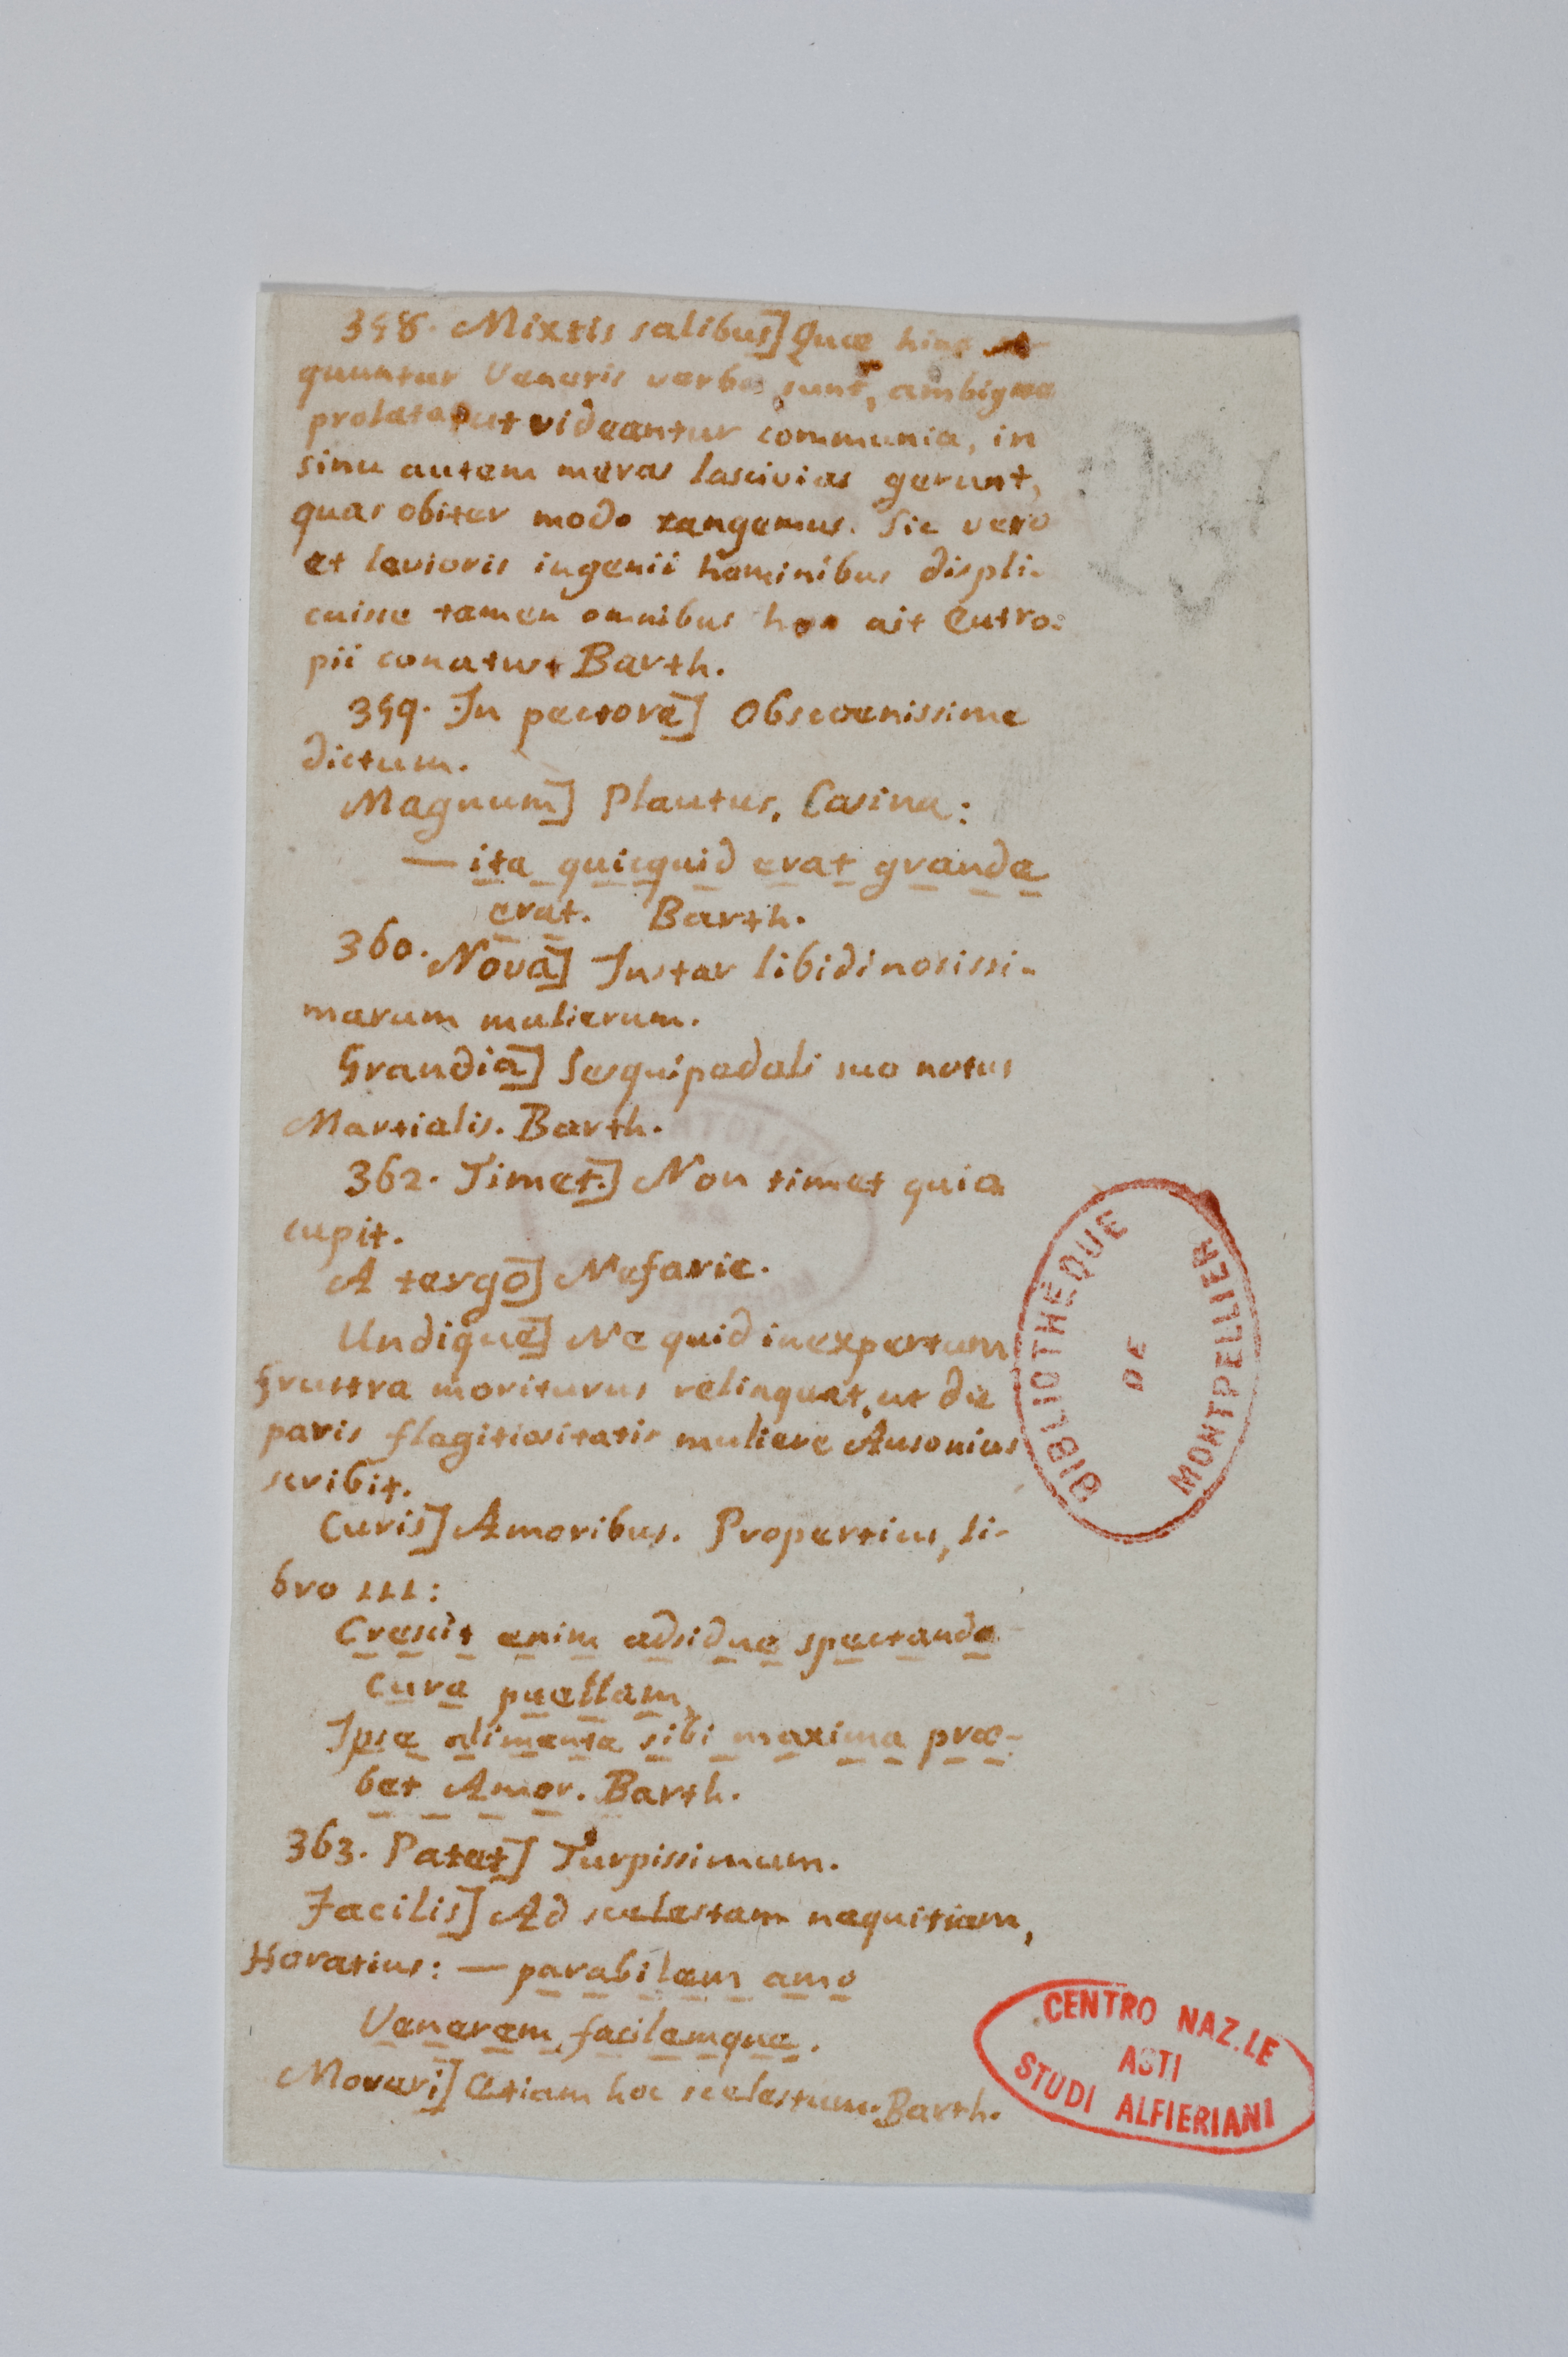 358. Mixtis salibus] Quæ hinc se-
quuntur Veneris verba sunt, ambigue
prolata, ut videantur communia, in
sinu autem meras lascivias gerunt,
quas obiter modo tangemus. Sic vero
et levioris ingenii hominibus displi-
cuisse tamen omnibus hos ait Eutro=
pii conatus Barth.
359. In pectore] Obscoenissime
dictum.
Magnum] Plautus, Casina:
— ita quicquid erat grande
erat. Barth.
360. Nova] Instar libidinosissi-
marum mulierum.
Grandia] Sesquipedali suo notus
Martialis. Barth.
362. Timet] Non timet quia
cupit.
A tergo] Nefarie.
Undique] Ne quid inexpertum
frustra moriturus relinquat, ut de
paris flagitiositatis muliere Ausonius
scribit.
Curis] Amoribus. Propertius, li-
bro III:
Crescit enim adsidue spectando
cura puellam,
Ipse alimenta sibi maxima præ-
bet Amor. Barth.
363. Patet] Turpissimum.
Facilis] Ad scelestam nequitiam,
Horatius: — parabilem amo
Venerem, facilemque.
Moveri] Etiam hoc scelestum. Barth.
BIBLIOTHEQUE
DE
MONTPELLIER
CENTRO NAZ.LE
ASTI
STUDI ALFIERIANI